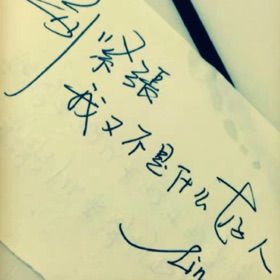 别紧張
我又不是什么好人
Lin